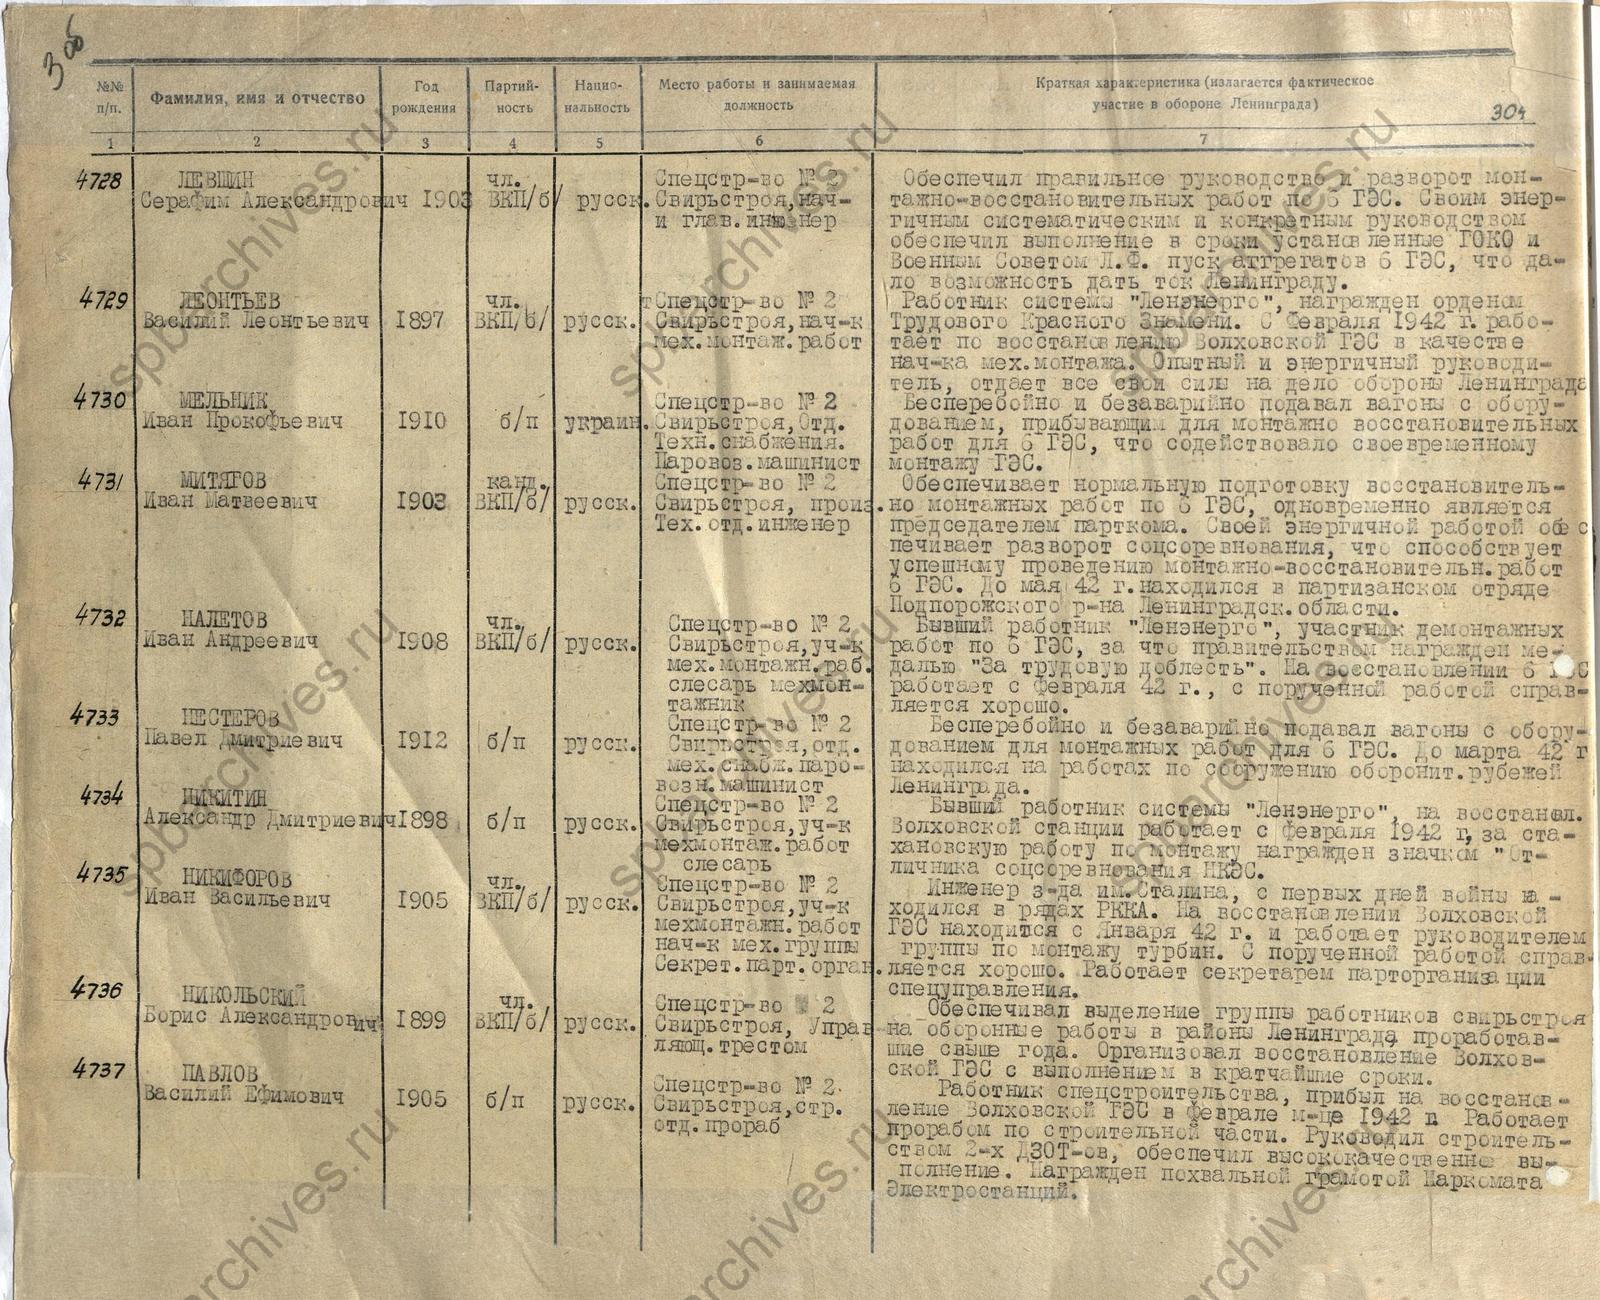 3об
304
№№ п/п. Фамилия, имя и отчество Год рождения Партий-ность Нацио-нальность Место работы и занимаемая должность Краткая характеристика (излагается фактическое участие в обороне Ленинграда)
1 2 3 4 5 6 7
4728 ЛЕВШИН чл. Спецстр-во № 2 Обеспечил правильное руководство и разворот мон-
Серафим Александрович 1903 ВКП/б/ русск. Свирьстроя,нач- тажно-восстановительных работ по 6 ГЭС. Своим энер-
и глав.инженер гичным систематическим и конкретным руководством
обеспечил выполнение в сроки установленные ГОКО и
Военным Советом Л.Ф. пуск аггрегатов 6 ГЭС, что да-
ло возможность дать ток Ленинграду.
4729 ЛЕОНТЬЕВ чл. Спецстр-во № 2 Работник системы "Ленэнерго", награжден орденом
Василий Леонтьевич 1897 ВКП/б/ русск. Свирьстроя,нач-к Трудового Красного Знамени. С Февраля 1942 г. рабо-
мех.монтаж.работ тает по восстановлению Волховской ГЭС в качестве
нач-ка мех.монтажа. Опытный и энергичный руководи-
тель, отдает все свои силы на дело обороны Ленинграда
4730 МЕЛЬНИК Спецстр-во № 2 Бесперебойно и безаварийно подавал вагоны с обору-
Иван Прокофьевич 1910 б/п украин. Свирьстроя,Отд. дованием, прибывающим для монтажно восстановительных
Техн.снабжения. работ для 6 ГЭС, что содействовало своевременному
Паровоз.машинист монтажу ГЭС.
4731 МИТЯГОВ канд. Спецстр-во № 2 Обеспечивает нормальную подготовку восстановитель-
Иван Матвеевич 1903 ВКП/б/ русск. Свирьстроя, произ. но монтажных работ по 6 ГЭС, одновременно является
Тех.отд.инженер председателем парткома. Своей энергичной работой обес
печивает разворот соцсоревнования, что способствует
успешному проведению монтажно-восстановительн.работ
6 ГЭС. До мая 42 г.находился в партизанском отряде
Подпорожского р-на Ленинградск.области.
4732 НАЛЕТОВ чл. Спецстр-во № 2 Бывший работник "Ленэнерго", участник демонтажных
Иван Андреевич 1908 ВКП/б/ русск. Свирьстроя,уч-к работ по 6 ГЭС, за что правительством награжден ме-
мех.монтажн.раб. далью "За трудовую доблесть". На восстановлении 6 ГЭС
слесарь мехмон- работает с февраля 42 г., с порученной работой справ-
тажник ляется хорошо.
4733 НЕСТЕРОВ Спецстр-во № 2 Бесперебойно и безаварийно подавал вагоны с обору-
Павел Дмитриевич 1912 б/п русск. Свирьстроя,отд. дованием для монтажных работ для 6 ГЭС. До марта 42 г
мех.снабж.паро- находился на работах по сооружению оборонит.рубежей
возн.машинист Ленинграда.
4734 НИКИТИН Спецстр-во № 2 Бывший работник системы "Ленэнерго", на восстановл.
Александр Дмитриевич 1898 б/п русск. Свирьстроя,уч-к Волховской станции работает с февраля 1942 г, за ста-
мехмонтаж.работ хановскую работу по монтажу награжден значком "От-
слесарь личника соцсоревнования НКЭС.
4735 НИКИФОРОВ чл. Спецстр-во № 2 Инженер з-да им.Сталина, с первых дней войны на-
Иван Васильевич 1905 ВКП/б/ русск. Свирьстроя,уч-к ходился в рядах РККА. На восстановлении Волховской
мехмонтажн.работ ГЭС находится с Января 42 г. и работает руководителем
нач-к мех.группы группы по монтажу турбин. С порученной работой справ-
Секрет.парт.орган. ляется хорошо. Работает секретарем парторганизации
спецуправления.
4736 НИКОЛЬСКИЙ чл. Спецстр-во 2 Обеспечивал выделение группы работников свирьстроя
Борис Александрович 1899 ВКП/б/ русск. Свирьстроя, Управ- на оборонные работы в районы Ленинграда проработав-
ляющ.трестом шие свыше года. Организовал восстановление Волхов-
ской ГЭС с выполнением в кратчайшие сроки.
4737 ПАВЛОВ Спецстр-во № 2. Работник спецстроительства, прибыл на восстанов-
Василий Ефимович 1905 б/п русск. Свирьстроя,стр. ление Волховской ГЭС в феврале м-це 1942 г. Работает
отд.прораб прорабом по строительной части. Руководил строитель-
ством 2-х ДЗОТ-ов, обеспечил высококачественно вы-
полнение. Награжден похвальной грамотой Наркомата
Электростанций.
spbarchives.ru